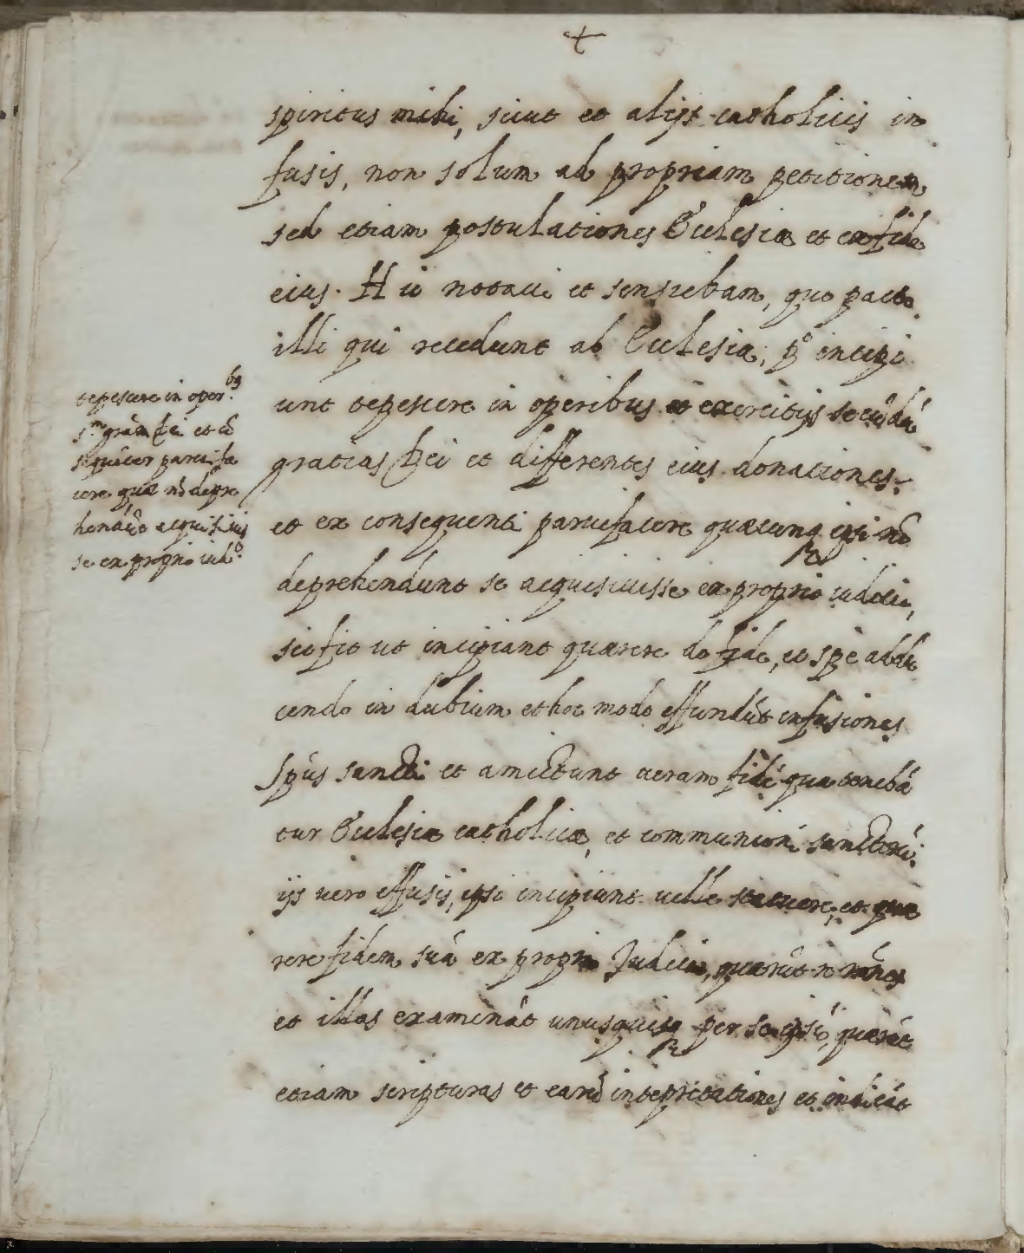 spiritus mihi, sicut et alijs catholicis in
fusis, non solum ad propriam petitionem
sed etiam postulationes Ecclesiæ et
eius. Hic notavi et sensiebam, quo pacto
illi qui recedunt ab Ecclesia, p.º incipi
unt tepescere in operibus et exercitijs secūdū
gratias Dei et differentes eius donationes.
et ex consequenti parvifacere quæcunq ipsi nō
deprehendunt se acquisivisse ex proprio iudicio,
sic fit ut incipiant quærere de fide, et spe addu
cendo in dubium et hoc modo effundūt infusiones
Spūs sancti et amittunt veram fidē qua tenebā
tur Ecclesiæ catholicæ, et communioni sanctorū.
ijs vero effusis, ipsi incipiunt velle statuere, et quæ
rere fidem suā ex proprio Judicio, quærūt rōnes
et illas examināt unusquisq per se ipsū, quærūt
etiam scripturas et earū intepretationes et indicāt
tepescere in oper.bg
s.m grām Dei et cō
sequēter parvifa
cere quæ nō depre
hendūt acquisivis
se ex proprio iud.º